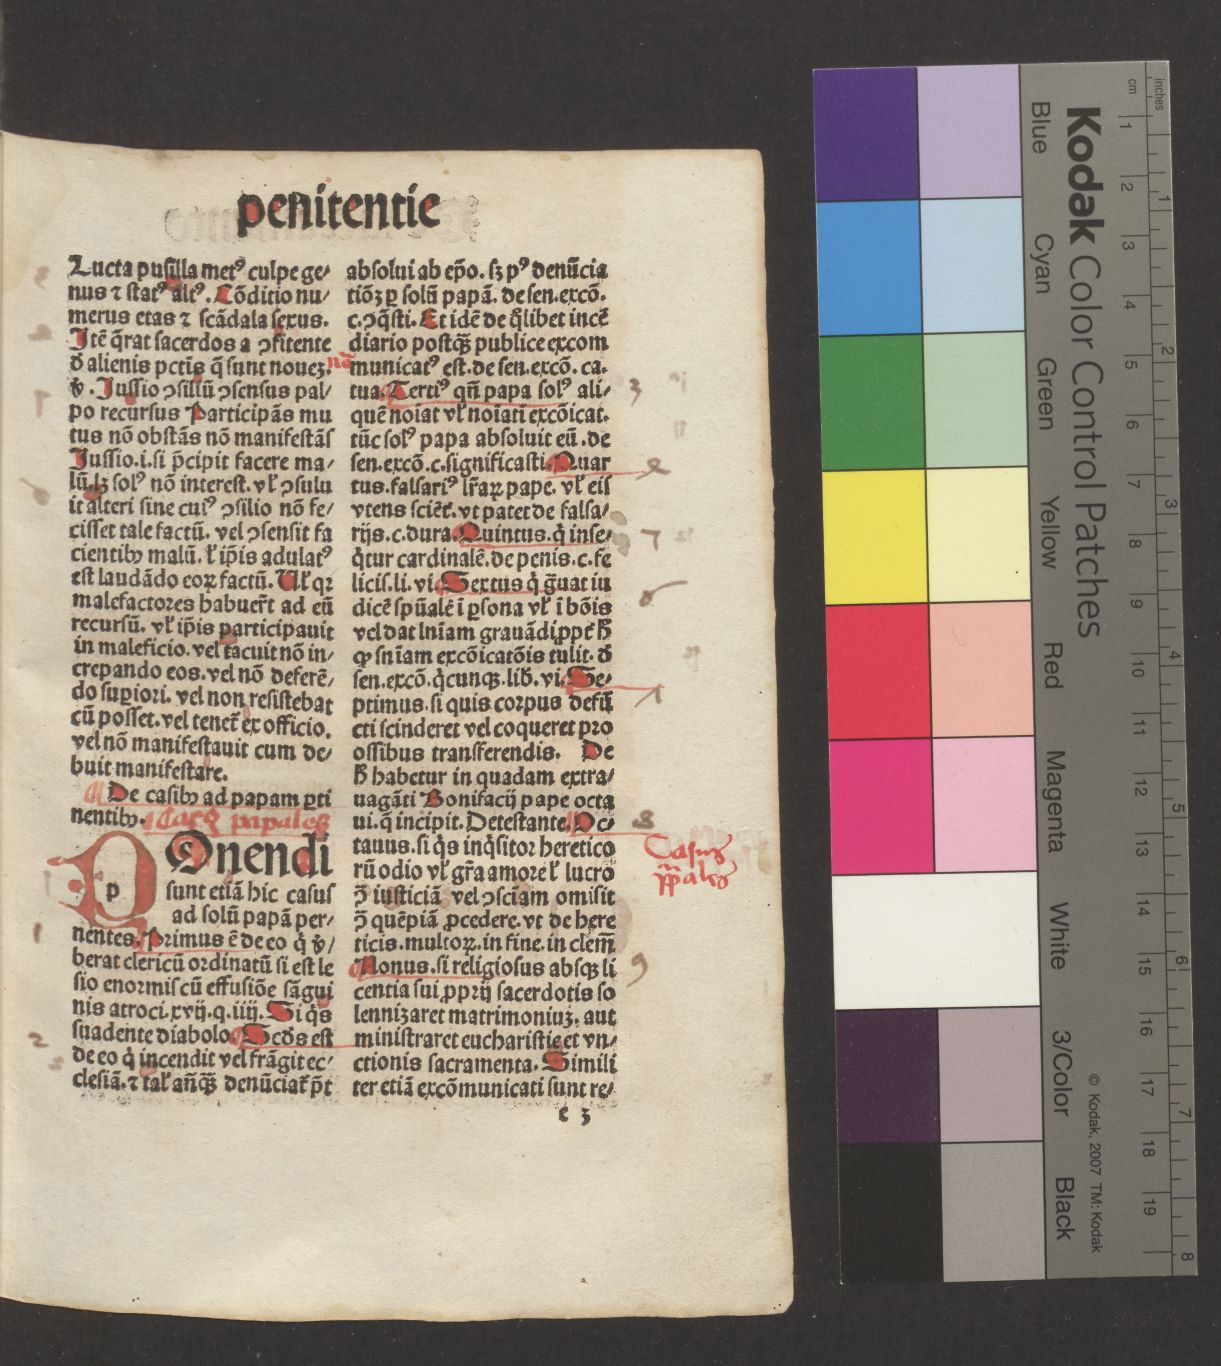 penitentie
Lucta pusilla metꝰ culpe ge⸗
nus ⁊ statꝰ altꝰ. Cōditio nu⸗
merus etas ⁊ scādala sexus.
Itē q̄rat sacerdos a ↄfitente
d̄ alienis pctīs q̄ sunt nouez.
v̄. Jussio ↄsiliū ↄsensus pal⸗
po recursus Participās mu
tus nō obstās nō manifestās
Jussio.i.si p̄cipit facere ma⸗
lū.lꝫ solꝰ nō interest. vl̓ ↄsulu
it alteri sine cuiꝰ ↄsilio nō fe⸗
cisset tale factū. vel ↄsensit fa
cientibꝰ malū. l̓ ip̄is adulatꝰ
est laudādo eoꝝ factū. Ul̓ qꝛ
malefactores habuer̄t ad eū
recursū. vl̓ ip̄is participauit
in maleficio. vel tacuit nō in⸗
crepando eos. vel nō deferē⸗
do suꝑiori. vel non resistebat
cū posset. vel tenet̄ ex officio.
vel nō manifestauit cum de⸗
buit manifestare.
De casibꝰ ad papam ꝑti
nentibꝰ. Casꝰ papales
p Onendi
sunt etiā hic casus
ad solū papā per⸗
nentes. Primus ē de eo q̇ v̄⸗
berat clericū ordinatū si est le
sio enormis cū effusiōe sāgui
nis atroci. xvij. q. iiij. Si q̇s
suadente diabolo. Scd̄s est
de eo q̇ incendit vel frāgit ec⸗
clesiā. ⁊ tal̓ an̄q̄ꝫ denūciat̄ p̄t
absolui ab ep̄o. sꝫ pꝰ denūcia
tiōꝫ ꝑ solū papā. de sen. excō.
c. ↄq̄sti. Et idē de q̄libet incē
diario postq̄ꝫ publice excom
municatꝰ est. de sen. excō. ca.
tua. Tertiꝰ qn̄ papa solꝰ ali⸗
quē noīat vl̓ noīati excōicat.
tūc solꝰ papa absoluit eū. de
sen. excō. c. significasti. Quar
tus. falsariꝰ lr̄aꝝ pape. vl̓ eis
vtens sciēt̄. vt patet de falsa⸗
rijs. c. dura. Quintus. q̇ inse⸗
q̇tur cardinalē. de penis. c. fe
licis. li. vi. Sextus q̇ ḡuat iu
dicē sp̄ualē ī ꝑsona vl̓ ī bōis
vel dat lniam grauādi ꝓpt̄ h̄
ꝙ sn̄iam excōicatōis tulit. d̄
sen. excō. q̇cunqꝫ. lib. vi. Se⸗
ptimus. si quis corpus defū
cti scinderet vel coqueret pro
ossibus transferendis. De
h̄ habetur in quadam extra⸗
uagāti Bonifacij pape octa
ui. q̄ incipit. Detestante. Oc⸗
tauus. si q̇s inq̇sitor heretico
rū odio vl̓ gr̄a amore l̓ lucro
ↄ̄ iusticiā vel ↄsciam omisit
ↄ̄ quēpiā ꝓcedere. vt de here
ticis. multoꝝ. in fine. in clem̄
Nonus. si religiosus absqꝫ li
centia sui ꝓprij sacerdotis so
lennizaret matrimoniuꝫ. aut
ministraret eucharistie et vn⸗
ctionis sacramenta. Simili
ter etiā excōmunicati sunt re⸗
c 3
nō
1
2
3
4
5
6
7
8
9
Casus
pp̄ales
Kodak Color Control Patches
Blue
Cyan
Green
Yellow
Red
Magenta
White
3/Color
Black
© Kodak, 2007 TM: Kodak
inches
1
2
3
4
5
6
7
8
cm
1
2
3
4
5
6
7
8
9
10
11
12
13
14
15
16
17
18
19